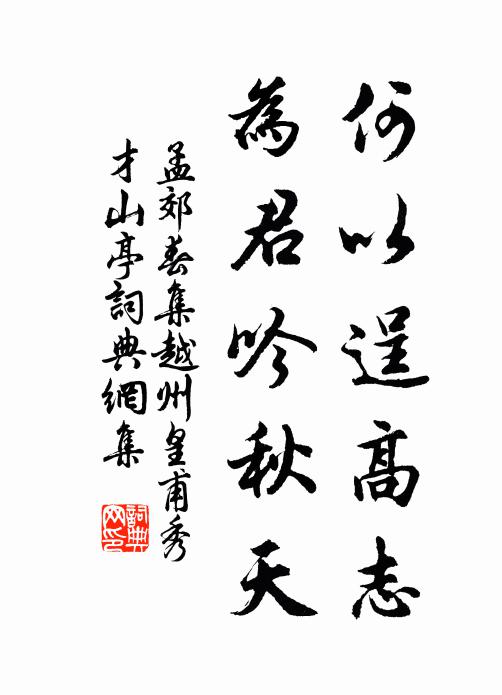 何以逞高志
為君吟秋天
孟郊春集越州皇甫秀
才山亭詞典網集
詞典
网印